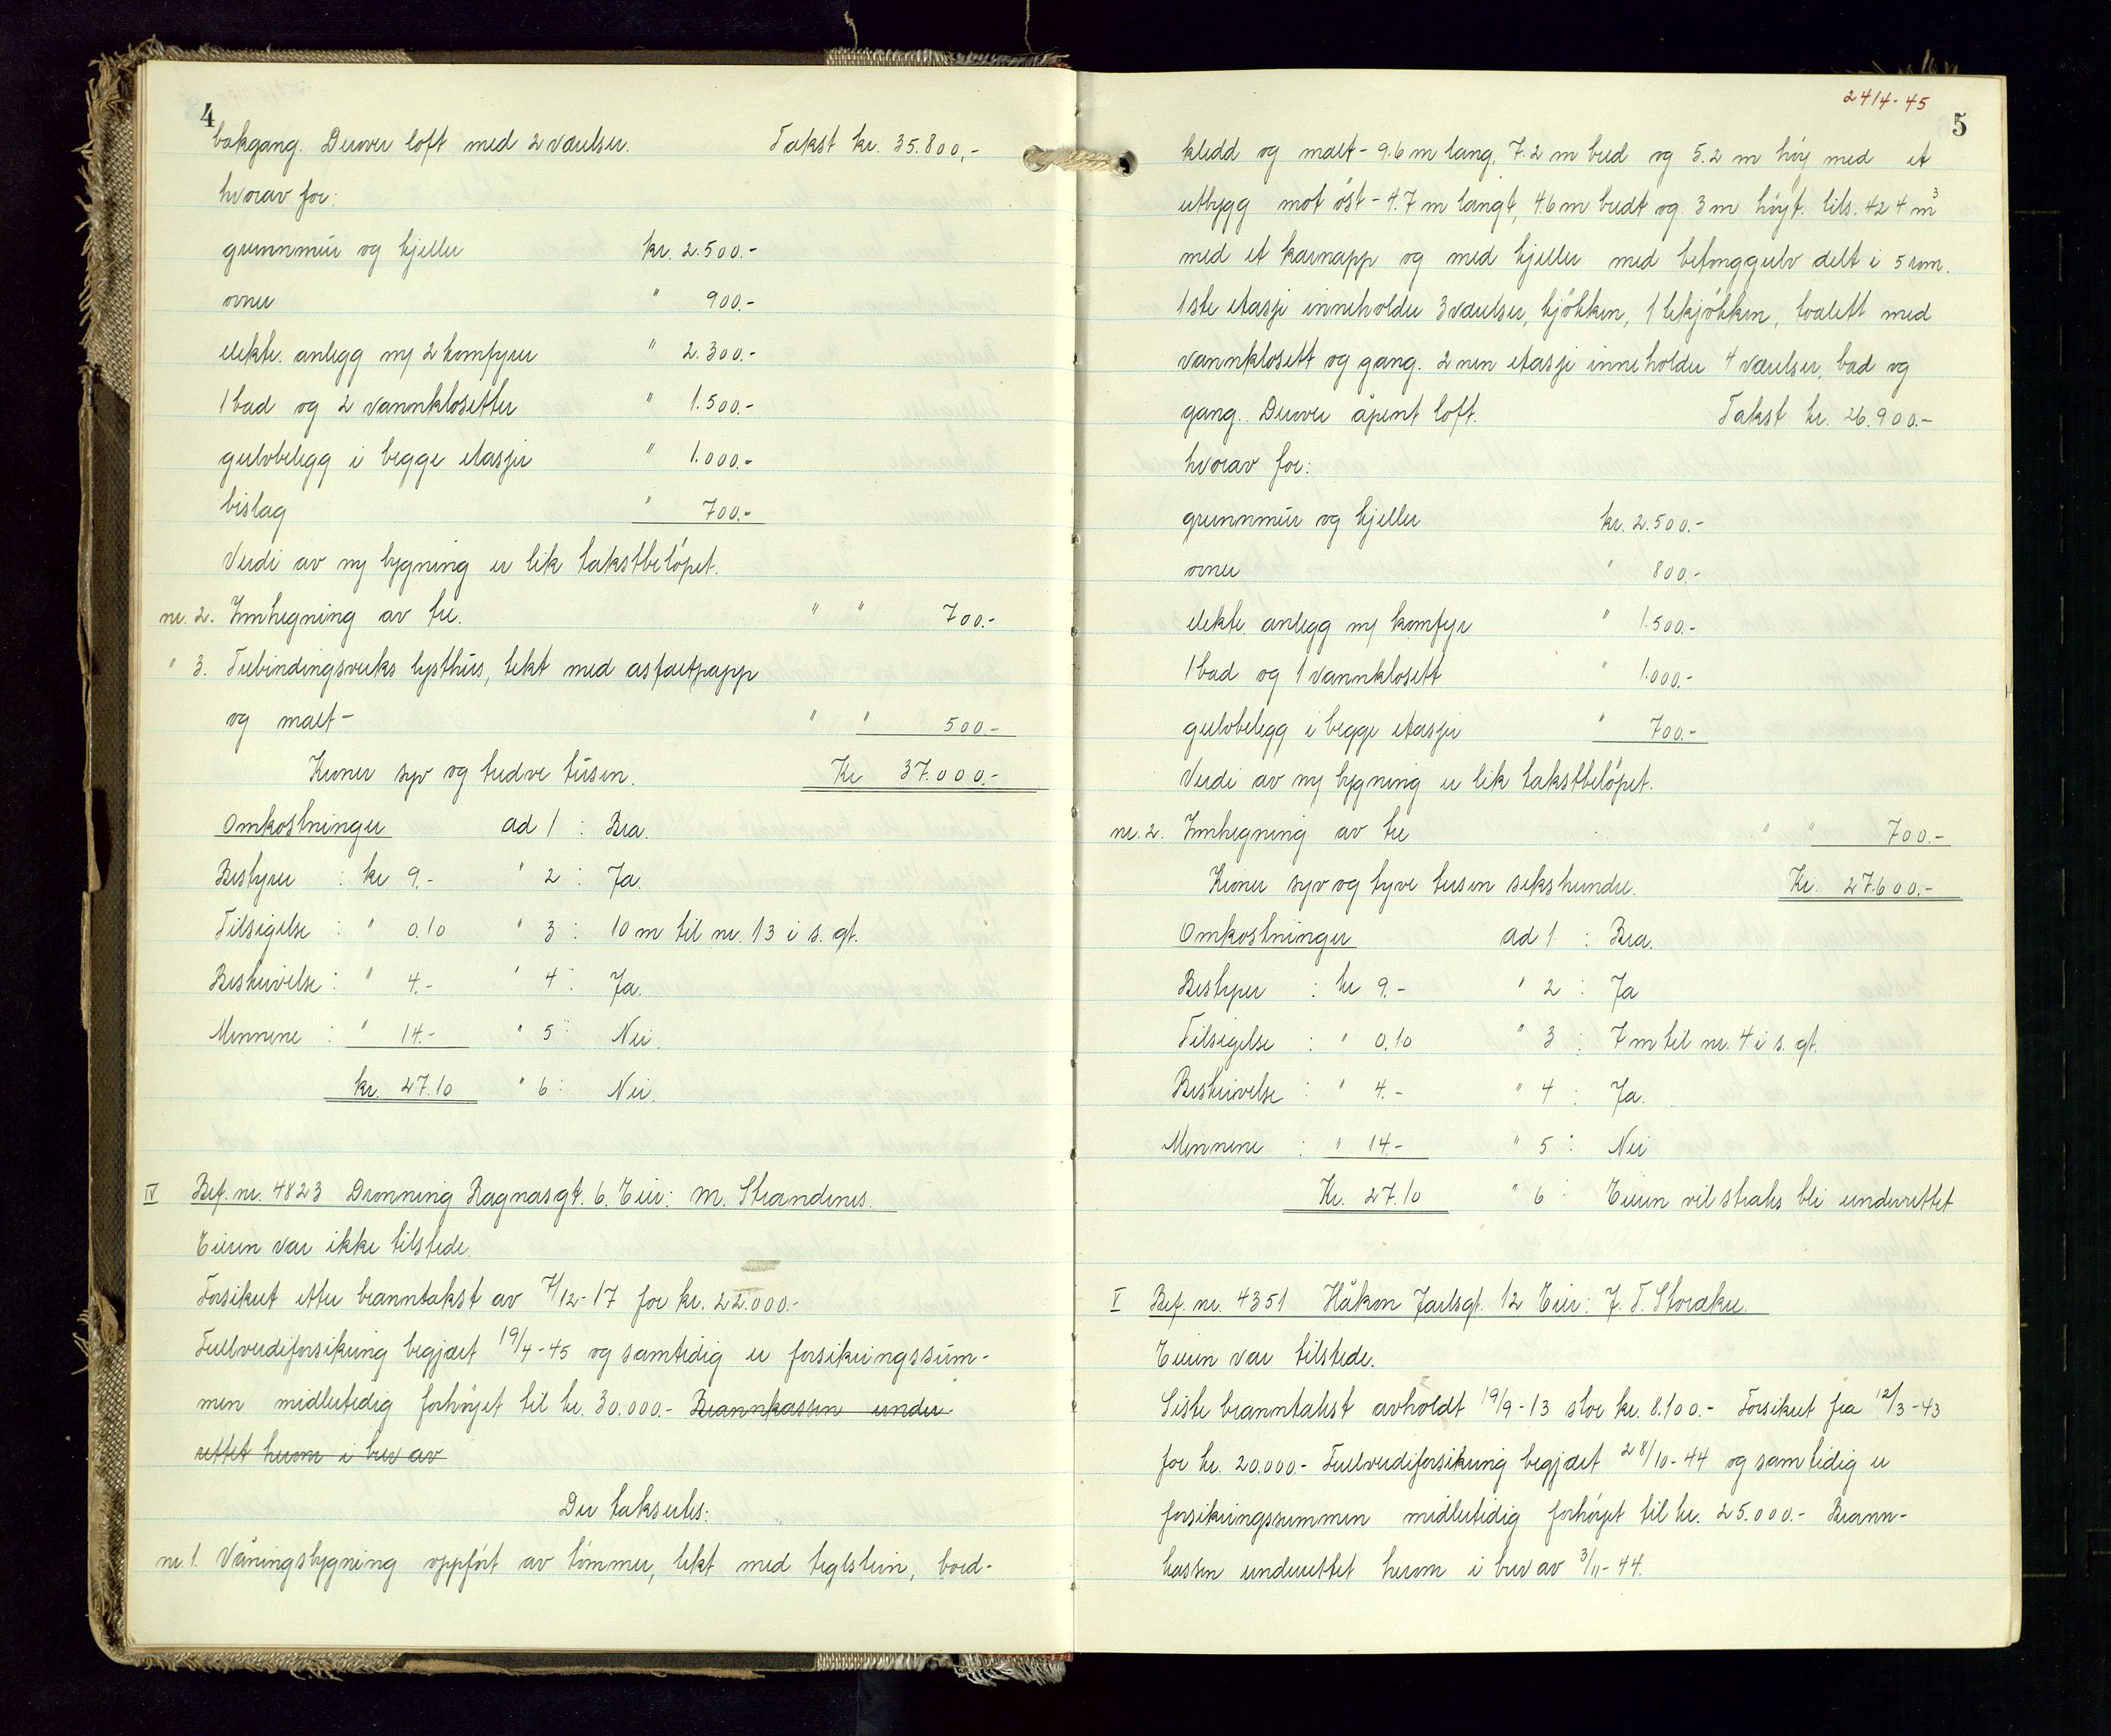 4
bakgang. Derover loft med 2 værelser. Takst kr. 35.800,-
hvorav for:
grunnmur og kjeller kr. 2.500.-
ovner " 900.-
elektr. anlegg m/ 2 komfyrer " 2.300.-
1 bad og 2 vannklosetter " 1.500.-
gulvbelegg i begge etasjer " 1.000.-
bislag " 700.-
Verdi av ny bygning er lik takstbeløpet.
nr. 2. Innhegning av tre. " " 700.-
" 3. Trebindingsverks lysthus, tekt med asfaltpapp
og malt - " " 500.-
Kroner syv og tredve tusen. Kr 37.000.-
Omkostninger ad 1 : Bra.
Bestyrer : kr 9.- " 2 : Ja.
Tilsigelse : " 0.10 " 3 : 10 m til nr. 13 i s. gt.
Beskrivelse : " 4.- " 4 : Ja.
Mennene : " 14.- " 5 : Nei.
kr. 27.10 " 6 : Nei.
IV Bef. nr. 4823 Dronning Ragnasgt. 6. Eier: M. Strandenes.
Eieren var ikke tilstede.
Forsikret etter branntakst av 7/12-17 for kr. 22.000.-
Fullverdiforsikring begjært 19/4-45 og samtidig er forsikringssum-
men midlertidig forhøyet til kr. 30.000.- Brannkassen under-
rettet herom i brev av
Der takseres:
nr. 1. Våningsbygning oppført av tømmer, tekt med teglstein, bord-
24/4-45
5
kledd og malt - 9.6 m lang, 7.2 m bred og 5.2 m høy med et
utbygg mot øst - 4.7 m langt, 4.6 m bredt og 3 m høyt. tils. 424 m3
med et karnapp og med kjeller med betonggulv delt i 5 rom.
1ste etasje inneholder 3 værelser, kjøkken, 1 tekjøkken, toalett med
vannklosett og gang. 2nen etasje inneholder 4 værelser, bad og
gang. Derover åpent loft. Takst kr. 26.900.-
hvorav for:
grunnmur og kjeller kr. 2.500.-
ovner " 800.-
elektr. anlegg m/ komfyr " 1.500.-
1 bad og 1 vannklosett " 1.000.-
gulvbelegg i begge etasjer " 700.-
Verdi av ny bygning er lik takstbeløpet.
nr. 2. Innhegning av tre " " 700.-
Kroner syv og tyve tusen sekshundre. Kr. 27.600.-
Omkostninger ad 1 : Bra.
Bestyrer : kr 9.- " 2 : Ja
Tilsigelse : " 0.10 " 3 : 7 m til nr. 4 i s. gt.
Beskrivelse : " 4.- " 4 : Ja.
Mennene : " 14.- " 5 : Nei
Kr. 27.10 " 6 : Eieren vil straks bli underrettet
V Bef. nr. 4351 Håkon Jarlsgt. 12 Eier: J. T. Storaker.
Eieren var tilstede.
Siste branntakst avholdt 19/9-13 stor kr. 8.100.- Forsikret fra 12/3-43
for kr. 20.000.- Fullverdiforsikring begjært 28/10-44 og samtidig er
forsikringssummen midlertidig forhøyet til kr. 25.000.- Brann-
kassen underrettet herom i brev av 3/11-44.